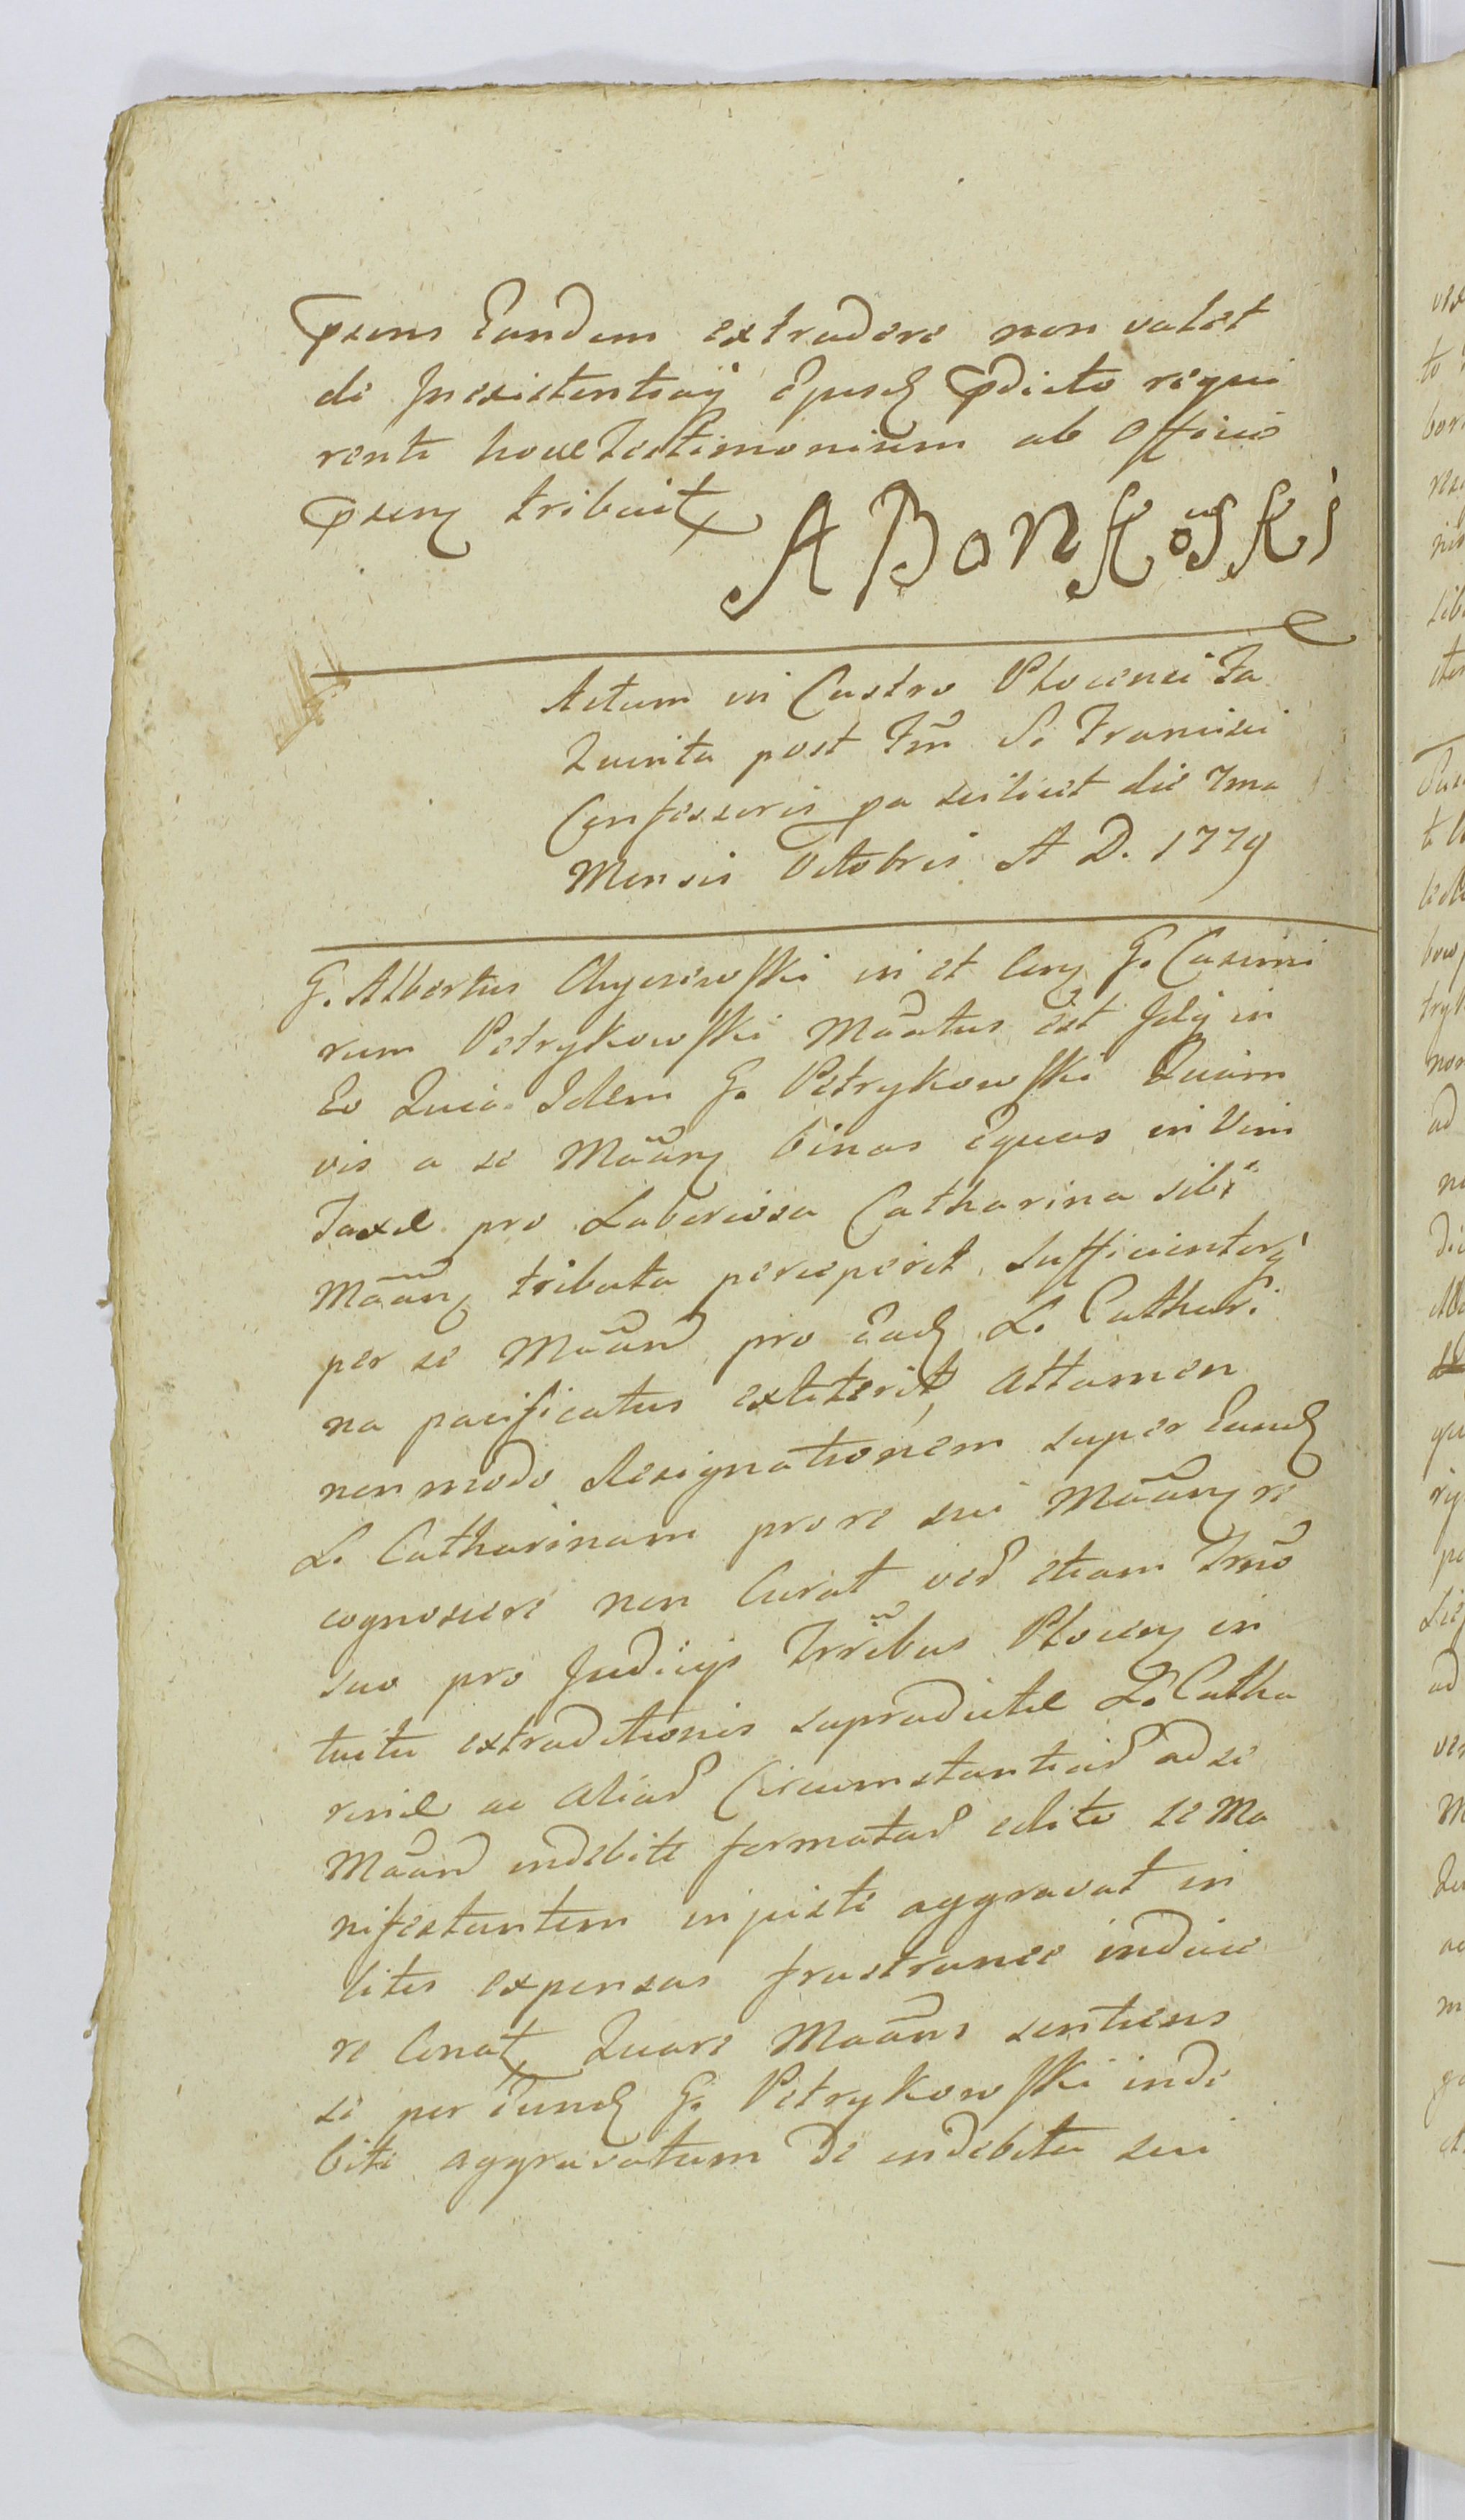 psens Eandem extradere non valet
de Inexistentiaq Ejusd pdicto requi
renti hocce Testimonium ab Officio
psenq tribuit
A Bonkowski
Actum in Castro Plocensi Fa
Quinta post Fm S. Francisci
Confessoris pa scilicet die 7ma
Mensis Octobris A D. 1779
G. Albertus Chyczewski in et Conq G. Casimi
rum Petrykowski Maatus est Idq in
Eo Quia Idem G. Petrykowski Quam
vis a se Maanq binas Equas in Vim
Taxae pro Laboriosa Catharina sibi
Maanq tributa perceperit Sufficienterq
per se Maand pro Ead L. Cathari
na pacificatus extiterit, attamen
non modo Resignationem super Eand
L. Catharinam pro re sui Maanq re
cognoscere non Curat ver etiam Trmo
suo pro Judicijs Trribus Plocenq in
tuitu extraditionis supradictae L. Catha
rinae ac aliar Circumstantiar ad se
Maand indebite formatar edito se Ma
nifestantem injuste aggravat in
litis expensas frustranee induce
re Conat, Quare Maans sentiens
se per Eund G. Petrykowski inde
bite aggravatum de indebita sui